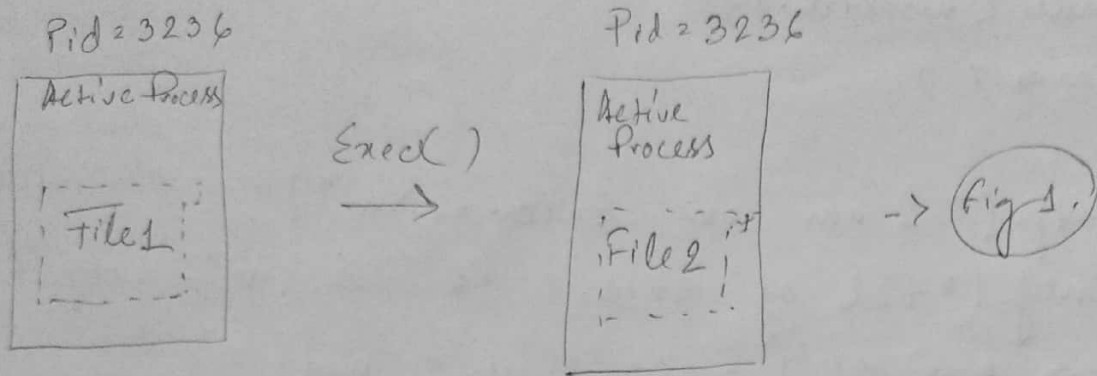 Pid = 3236
Active Process
File1
Exec( )
Pid = 3236
Active
Process
File 2
-> Fig 1.